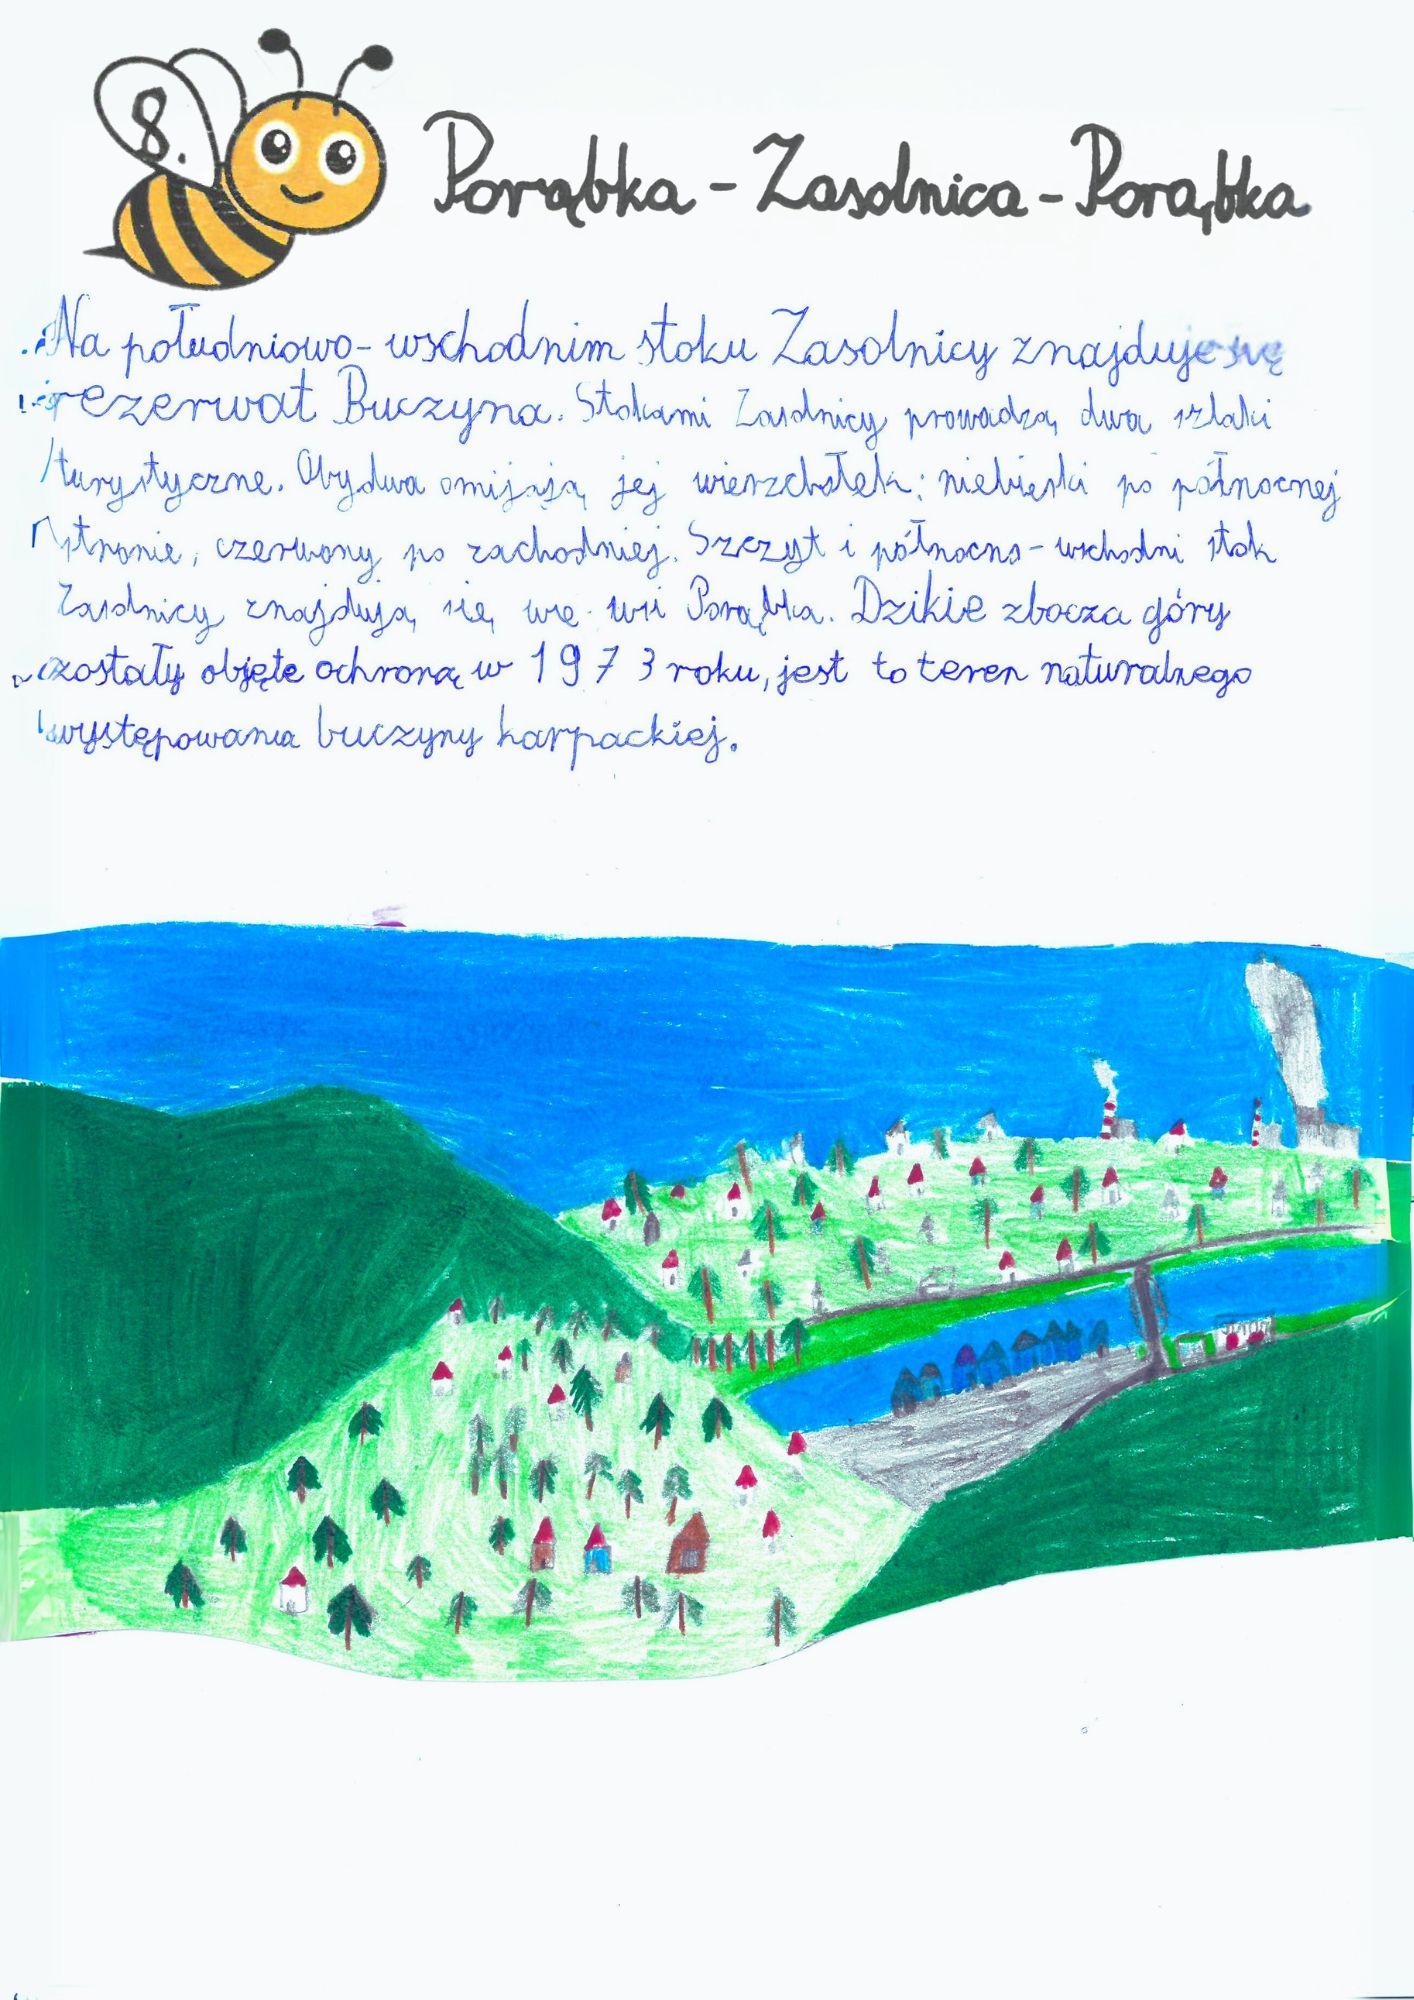 8.
Porąbka - Zasolnica - Porąbka
Na południowo-wschodnim stoku Zasolnicy znajduje się
rezerwat Buczyna. Stokami Zasolnicy prowadzą dwa szlaki
turystyczne. Obydwa omijają jej wierzchołek: niebieski po północnej
stronie, czerwony po zachodniej. Szczyt i północno-wschodni stok
Zasolnicy znajdują się we wsi Porąbka. Dzikie zbocza góry
zostały objęte ochroną w 1973 roku, jest to teren naturalnego
występowania buczyny karpackiej.